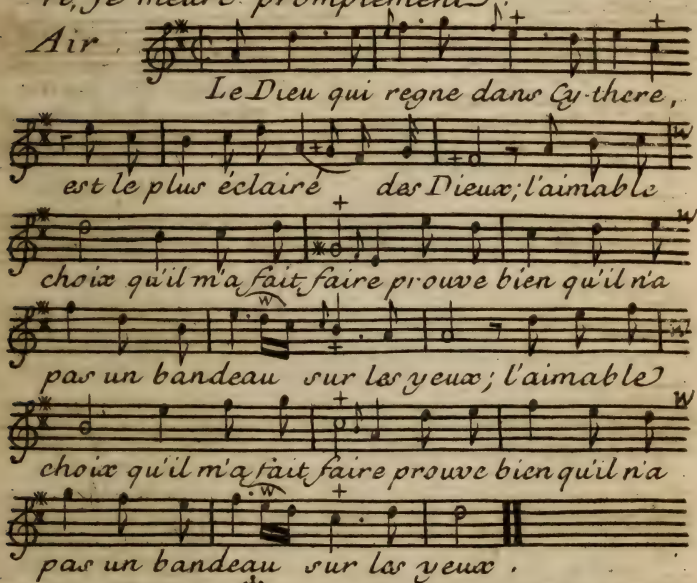 ri, je meurs promptement.
Air.
Le Dieu qui regne dans Cy-there,
est le plus éclairé des Dieux; l'aimable
choix qu'il m'a fait faire prouve bien qu'il n'a
pas un bandeau sur les yeux; l'aimable
choix qu'il m'a fait faire prouve bien qu'il n'a
pas un bandeau sur les yeux.